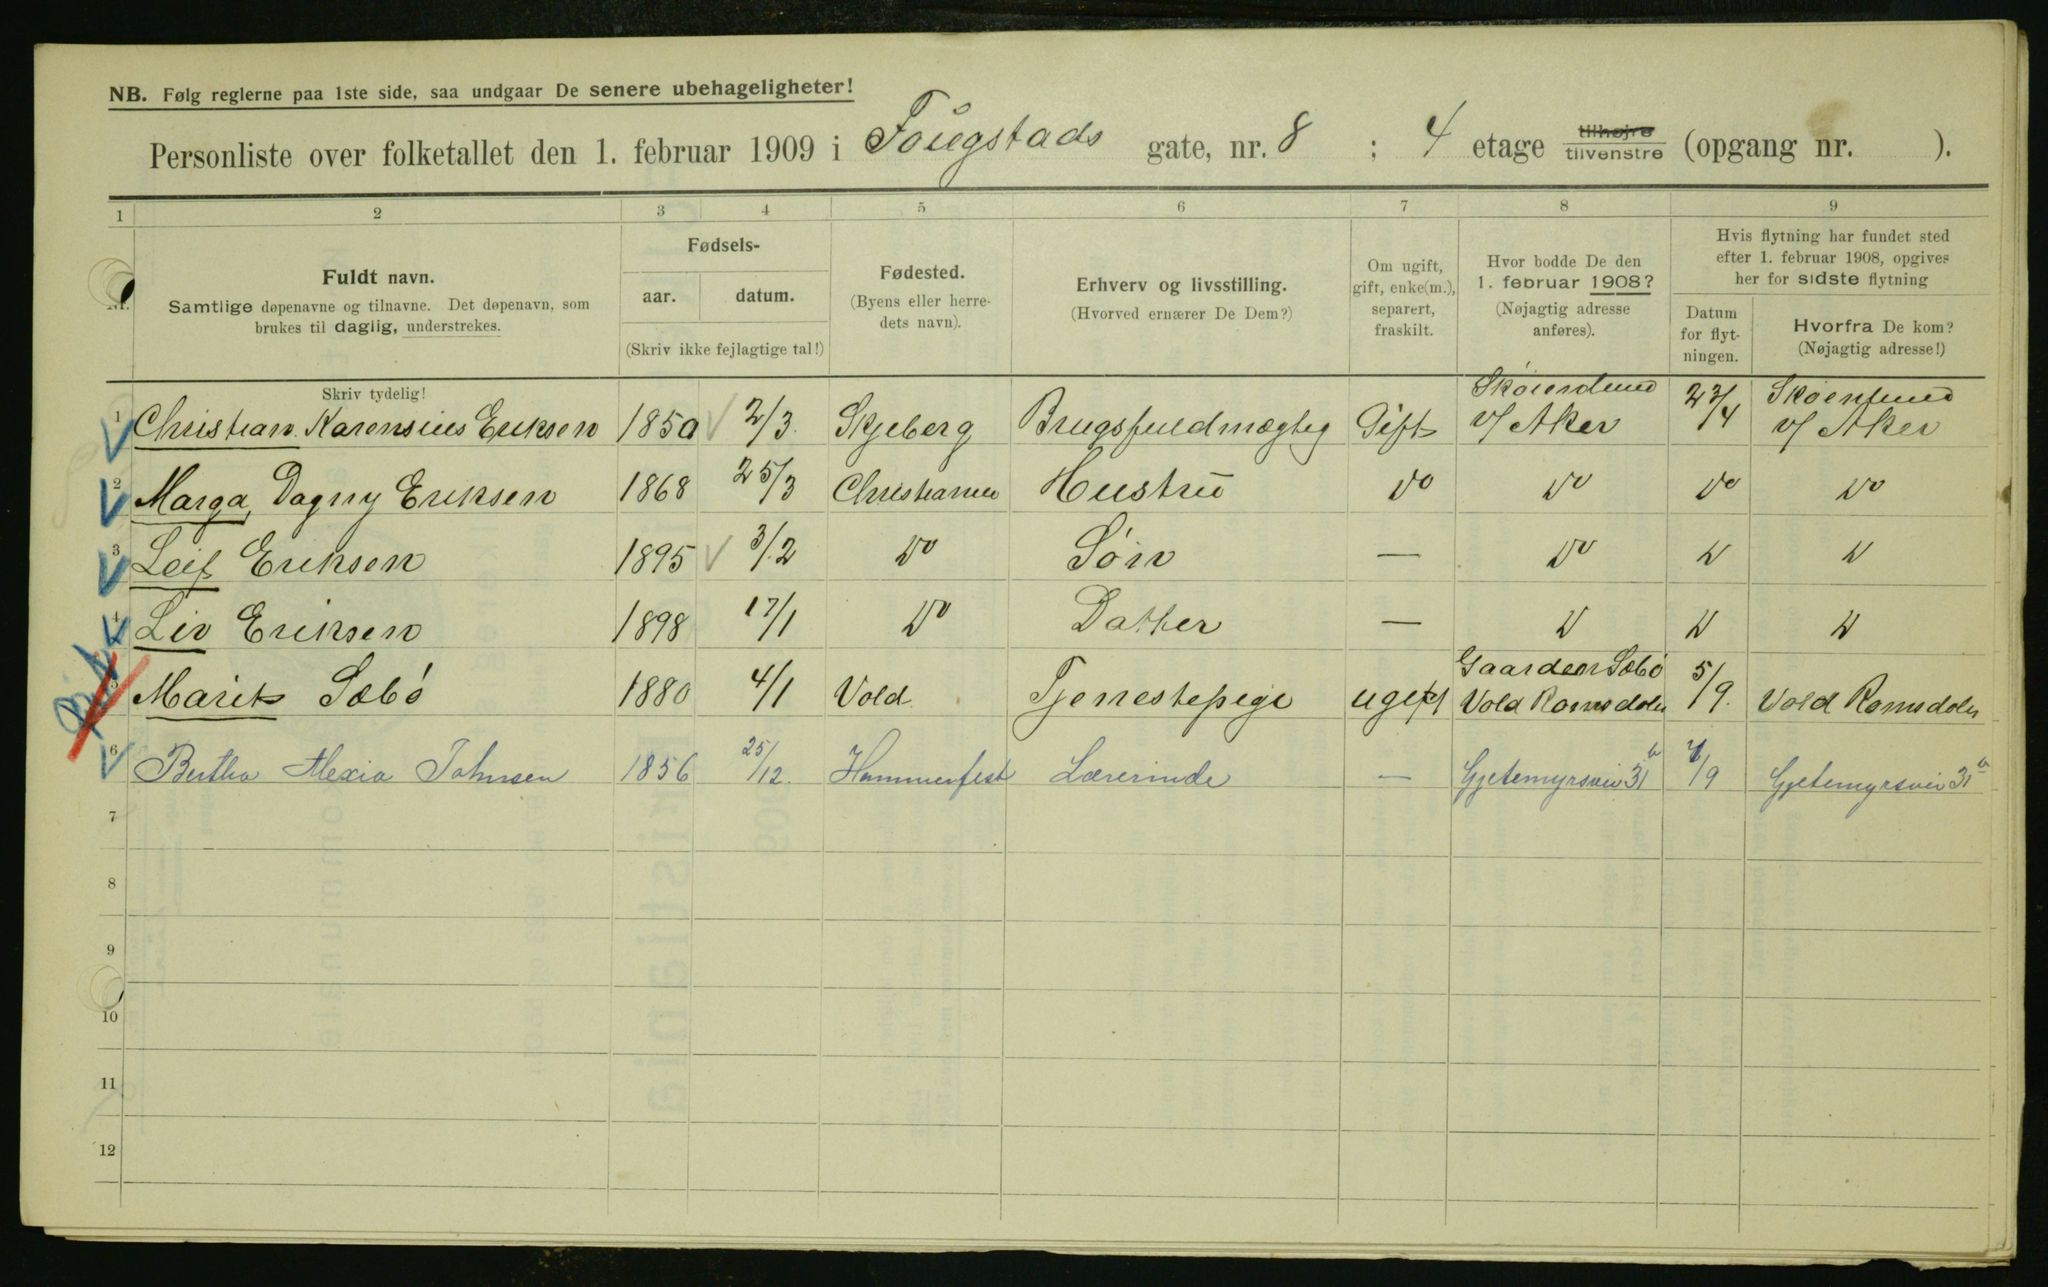 NB. Følg reglerne paa 1ste side, saa undgaar De senere ubehageligheter!
Personliste over folketallet den 1. februar 1909 i Fougstads gate, nr. 8 ; 4 etage tilhøjre tilvenstre (opgang nr. ).
1 2 3 4 5 6 7 8 9
Nr. Fuldt navn. Samtlige døpenavne og tilnavne. Det døpenavn, som brukes til daglig, understrekes.
Fødsels- aar. datum. (Skriv ikke fejlagtige tal!)
Fødested. (Byens eller herredets navn).
Erhverv og livsstilling. (Hvorved ernærer De Dem?)
Om ugift, gift, enke(m.), separert, fraskilt.
Hvor bodde De den 1. februar 1908? (Nøjagtig adresse anføres).
Hvis flytning har fundet sted efter 1. februar 1908, opgives her for sidste flytning
Datum for flytningen. Hvorfra De kom? (Nøjagtig adresse!)
Skriv tydelig!
1 Christian Karensius Eriksen 1850 2/3 Skjeberg Brugsfuldmægtig Gift Skøienlund v/ Aker 23/4 Skøienlund v/ Aker
2 Marga, Dagny Eriksen 1868 25/3 Christiania Hustru Do Do Do Do
3 Leif Eriksen 1895 3/2 Do Søn — Do D D
4 Liv Eriksen 1898 17/1 Do Datter — D D D
5 Marit Sæbø 1880 4/1 Vold Tjenestepige ugift Gaarden Sæbø Vold Romsdalen 5/9. Vold Romsdalen
6 Bertha Alexia Johnsen 1856 25/12. Hammerfest Lærerinde — Gjetemyrsvei 31 b /9 Gjetemyrsvei 31 b
7
8
9
10
11
12